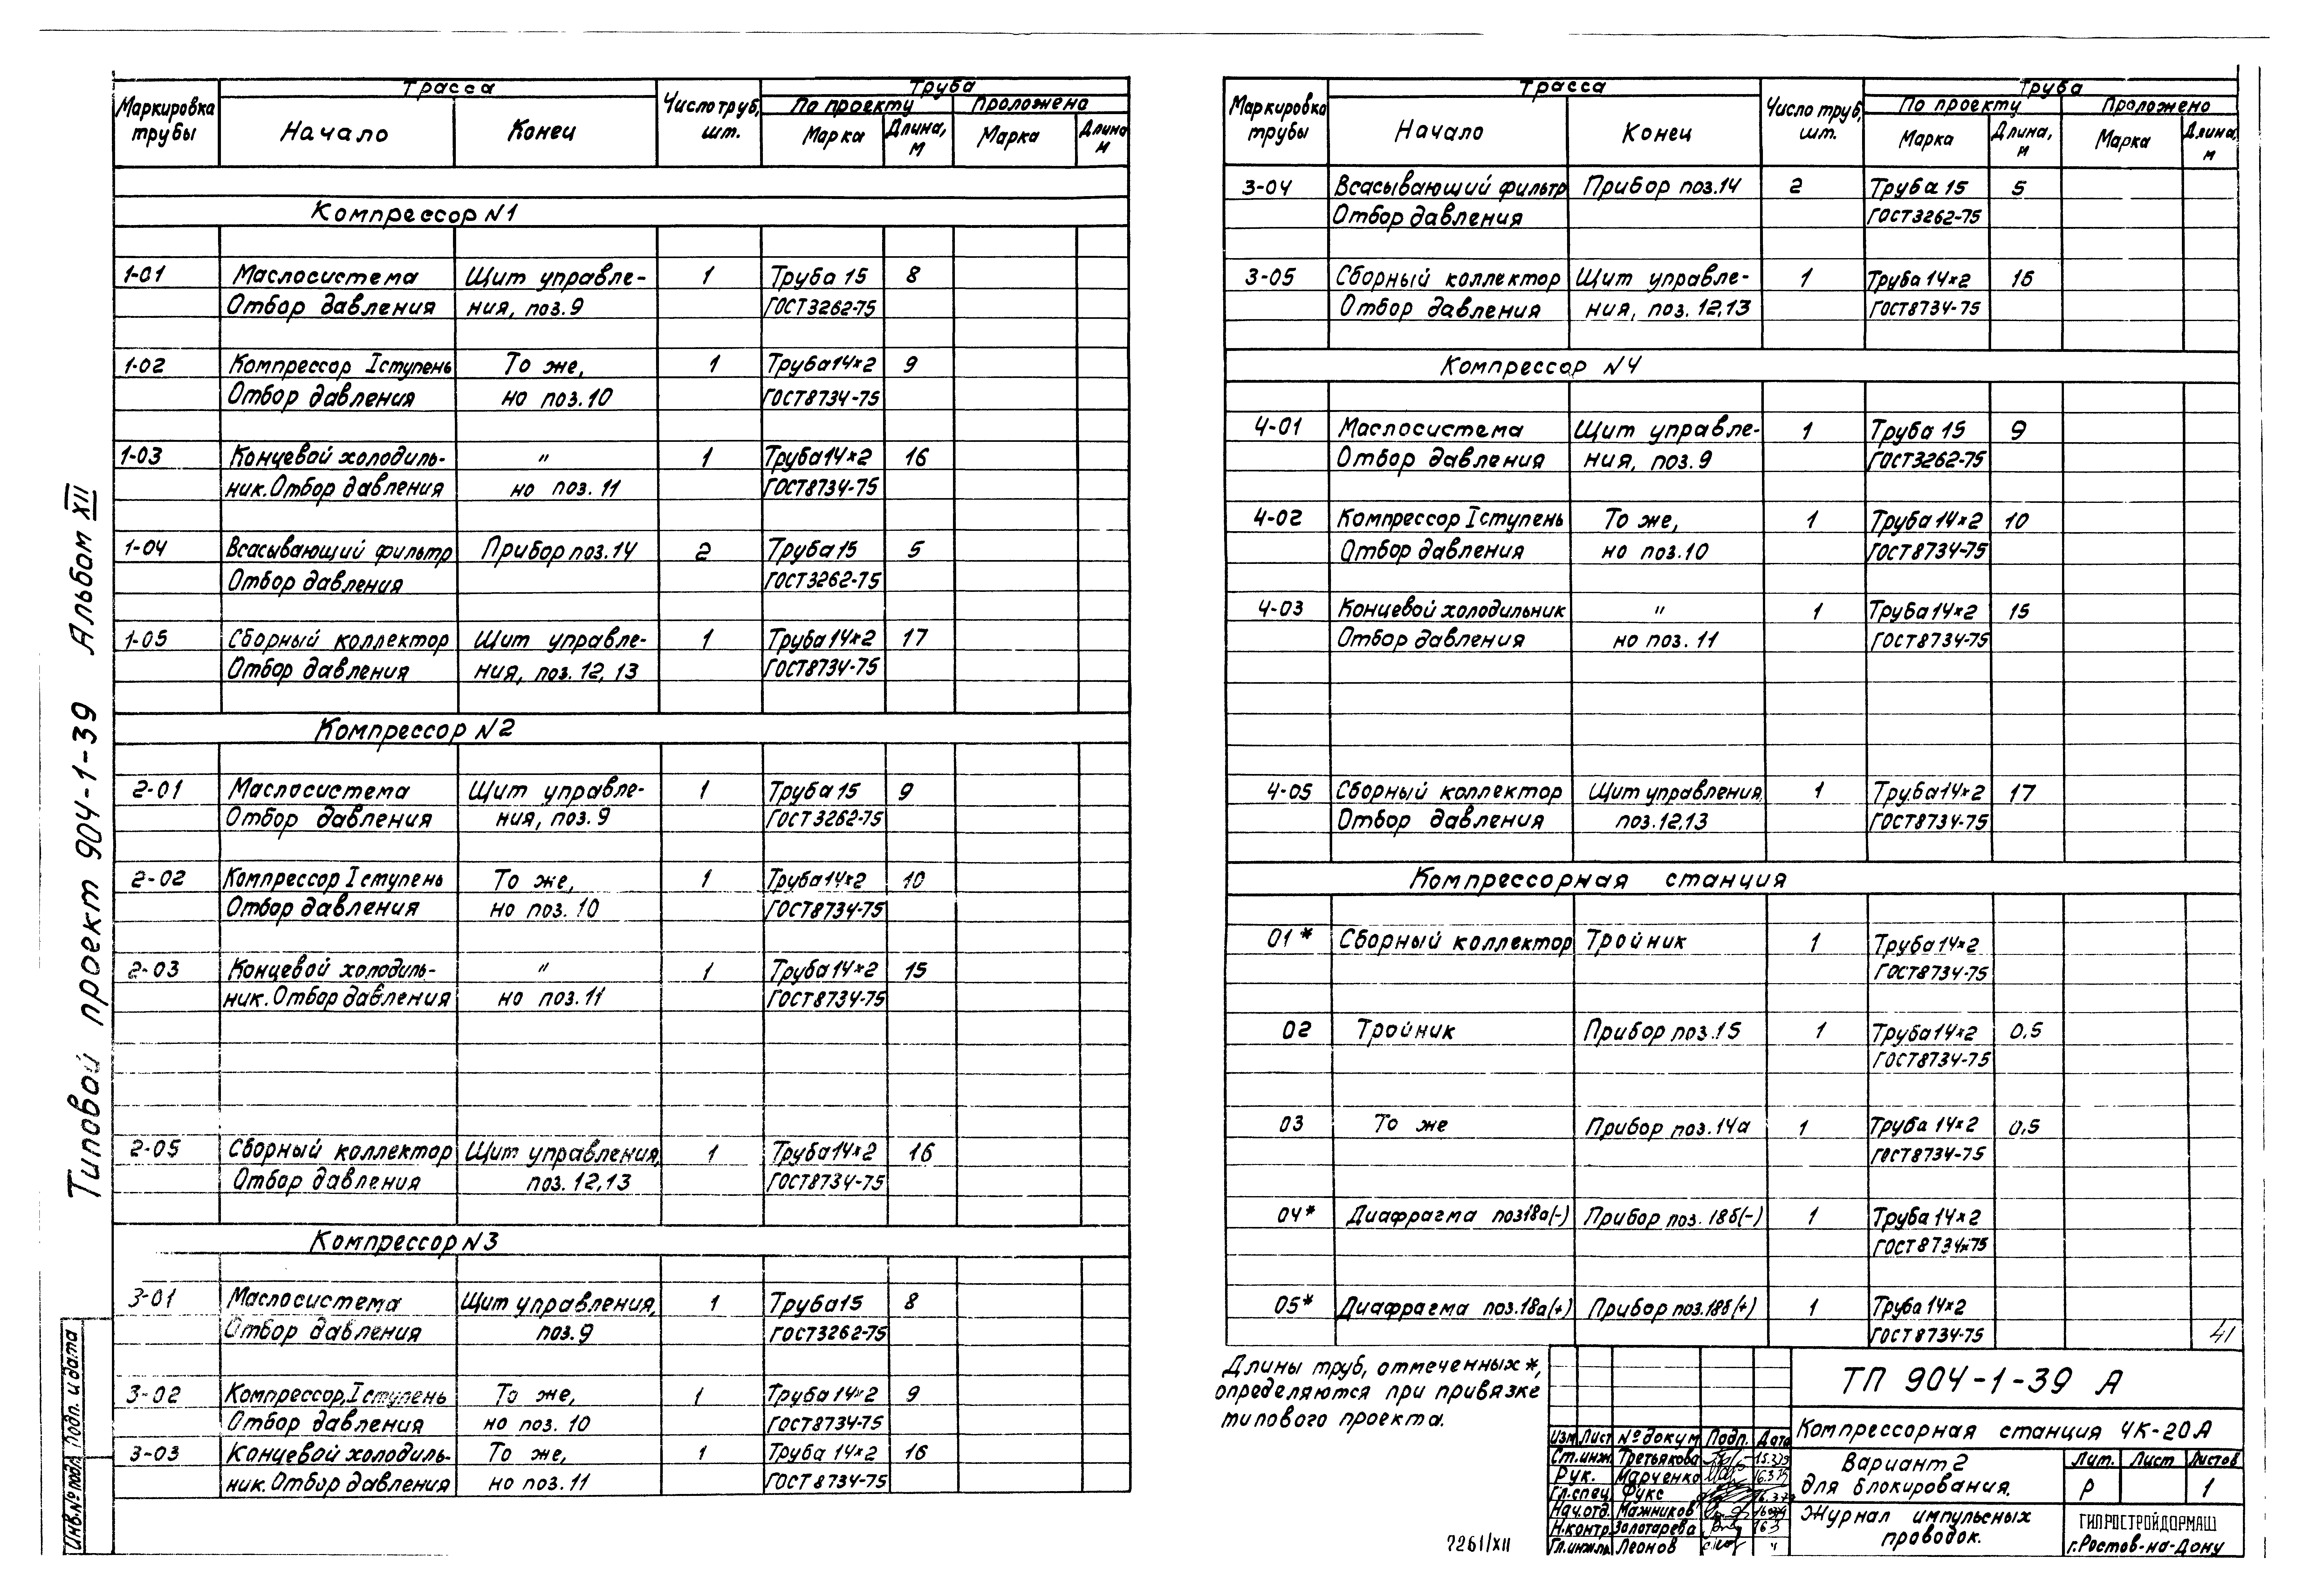 Типовой проект 904-1-39 Альбом XII
Инв.№ подл. Подп. и дата
Маркировка трубы Трасса Число труб, шт. Труба
По проекту Проложено
Начало Конец Марка Длина, м Марка Длина м
Компрессор N1
1-01 Маслосистема Щит управле- 1 Труба 15 8
Отбор давления ния, поз.9 ГОСТ3262-75
1-02 Компрессор I ступень То же, 1 Труба 14×2 9
Отбор давления но поз.10 ГОСТ8734-75
1-03 Концевой холодиль- " 1 Труба 14×2 16
ник. Отбор давления но поз. 11 ГОСТ8734-75
1-04 Всасывающий фильтр Прибор поз.14 2 Труба 15 5
Отбор давления ГОСТ3262-75
1-05 Сборный коллектор Щит управле- 1 Труба 14×2 17
Отбор давления ния, поз. 12, 13 ГОСТ8734-75
Компрессор N2
2-01 Маслосистема Щит управле- 1 Труба 15 9
Отбор давления ния, поз. 9 ГОСТ3262-75
2-02 Компрессор I ступень То же, 1 Труба 14×2 10
Отбор давления но поз. 10 ГОСТ8734-75
2-03 Концевой холодиль- " 1 Труба 14×2 15
ник. Отбор давления но поз.11 ГОСТ8734-75
2-05 Сборный коллектор Щит управления, 1 Труба 14×2 16
Отбор давления поз. 12,13 ГОСТ8734-75
Компрессор N3
3-01 Маслосистема Щит управления, 1 Труба 15 8
Отбор давления поз.9 ГОСТ3262-75
3-02 Компрессор, I ступень То же, 1 Труба 14×2 9
Отбор давления но поз. 10 ГОСТ8734-75
3-03 Концевой холодиль- То же, 1 Труба 14×2 16
ник. Отбор давления но поз.11 ГОСТ 8734-75
Маркировка трубы Трасса Число труб, шт. Труба
По проекту Проложено
Начало Конец Марка Длина, м Марка Длина м
3-04 Всасывающий фильтр Прибор поз.14 2 Труба 15 5
Отбор давления ГОСТ3262-75
3-05 Сборный коллектор Щит управле- 1 Труба 14×2 16
Отбор давления ния, поз. 12,13 ГОСТ8734-75
Компрессор N4
4-01 Маслосистема Щит управле- 1 Труба 15 9
Отбор давления ния, поз.9 ГОСТ3262-75
4-02 Компрессор I ступень То же, 1 Труба 14×2 10
Отбор давления но поз.10 ГОСТ8734-75
4-03 Концевой холодильник " 1 Труба 14×2 15
Отбор давления но поз. 11 ГОСТ8734-75
4-05 Сборный коллектор Щит управления, 1 Труба 14×2 17
Отбор давления поз.12,13 ГОСТ8734-75
Компрессорная станция
01* Сборный коллектор Тройник 1 Труба 14×2
ГОСТ8734-75
02 Тройник Прибор поз.15 1 Труба 14×2 0,5
ГОСТ8734-75
03 То же Прибор поз.14а 1 Труба 14×2 0,5
ГОСТ8734-75
04* Диафрагма поз18а(-) Прибор поз. 18б(-) 1 Труба 14×2
ГОСТ8734×75
05* Диафрагма поз.18а(+) Прибор поз.18б(+) 1 Труба 14×2
ГОСТ8734-75
41
Длины труб, отмеченных *,
определяются при привязке
типового проекта.
ТП 904-1-39 А
Компрессорная станция 4К-20А
Изм Лист № докум Подп. Дата
Ст.инж. Третьякова
Рук. Марченко
Гл.спец Фукс
Нач.отд. Мажников
Н.контр. Золотарева
Гл.инж.пр. Леонов
Вариант 2
для блокирования.
Лит. Лист Листов
Р 1
Журнал импульсных
проводок.
ГИПРОСТРОЙДОРМАШ
г.Ростов-на-Дону
7261/XII